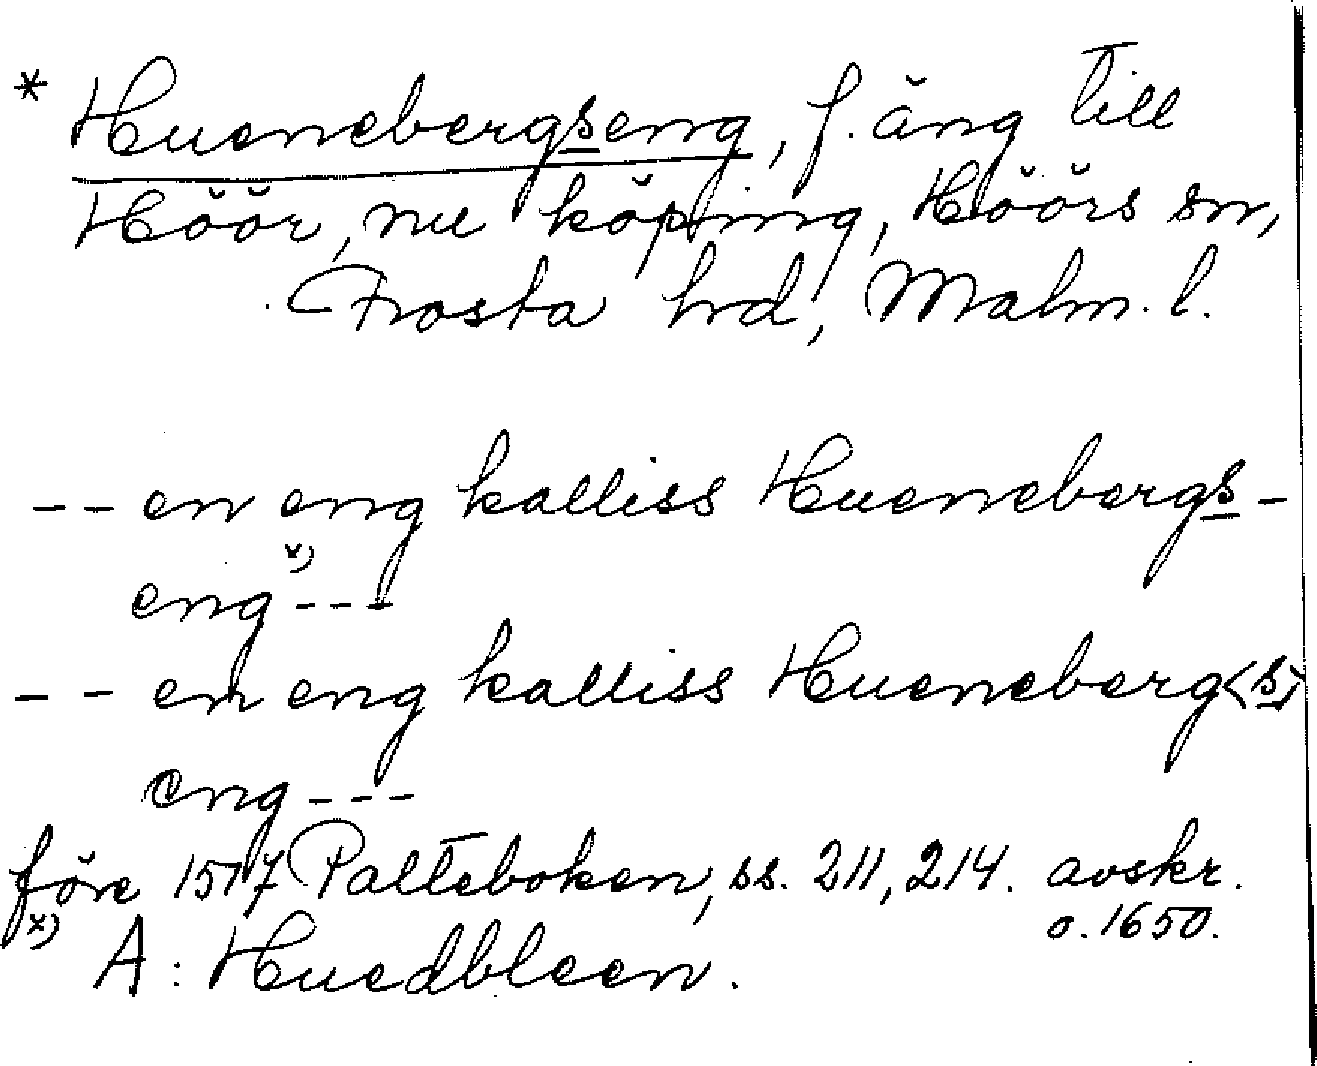 * Huenebergseng, f. äng till
Höör, nu köping, Höörs sn,
Frosta hrd, Malm. l.
-- en eng kalliss Huenebergs-
eng x) ---
-- en eng kalliss Hueneberg<s>
eng ---
före 1517 Palteboken, ss. 211, 214. avskr.
o. 1650.
x) A: Huedbleen.